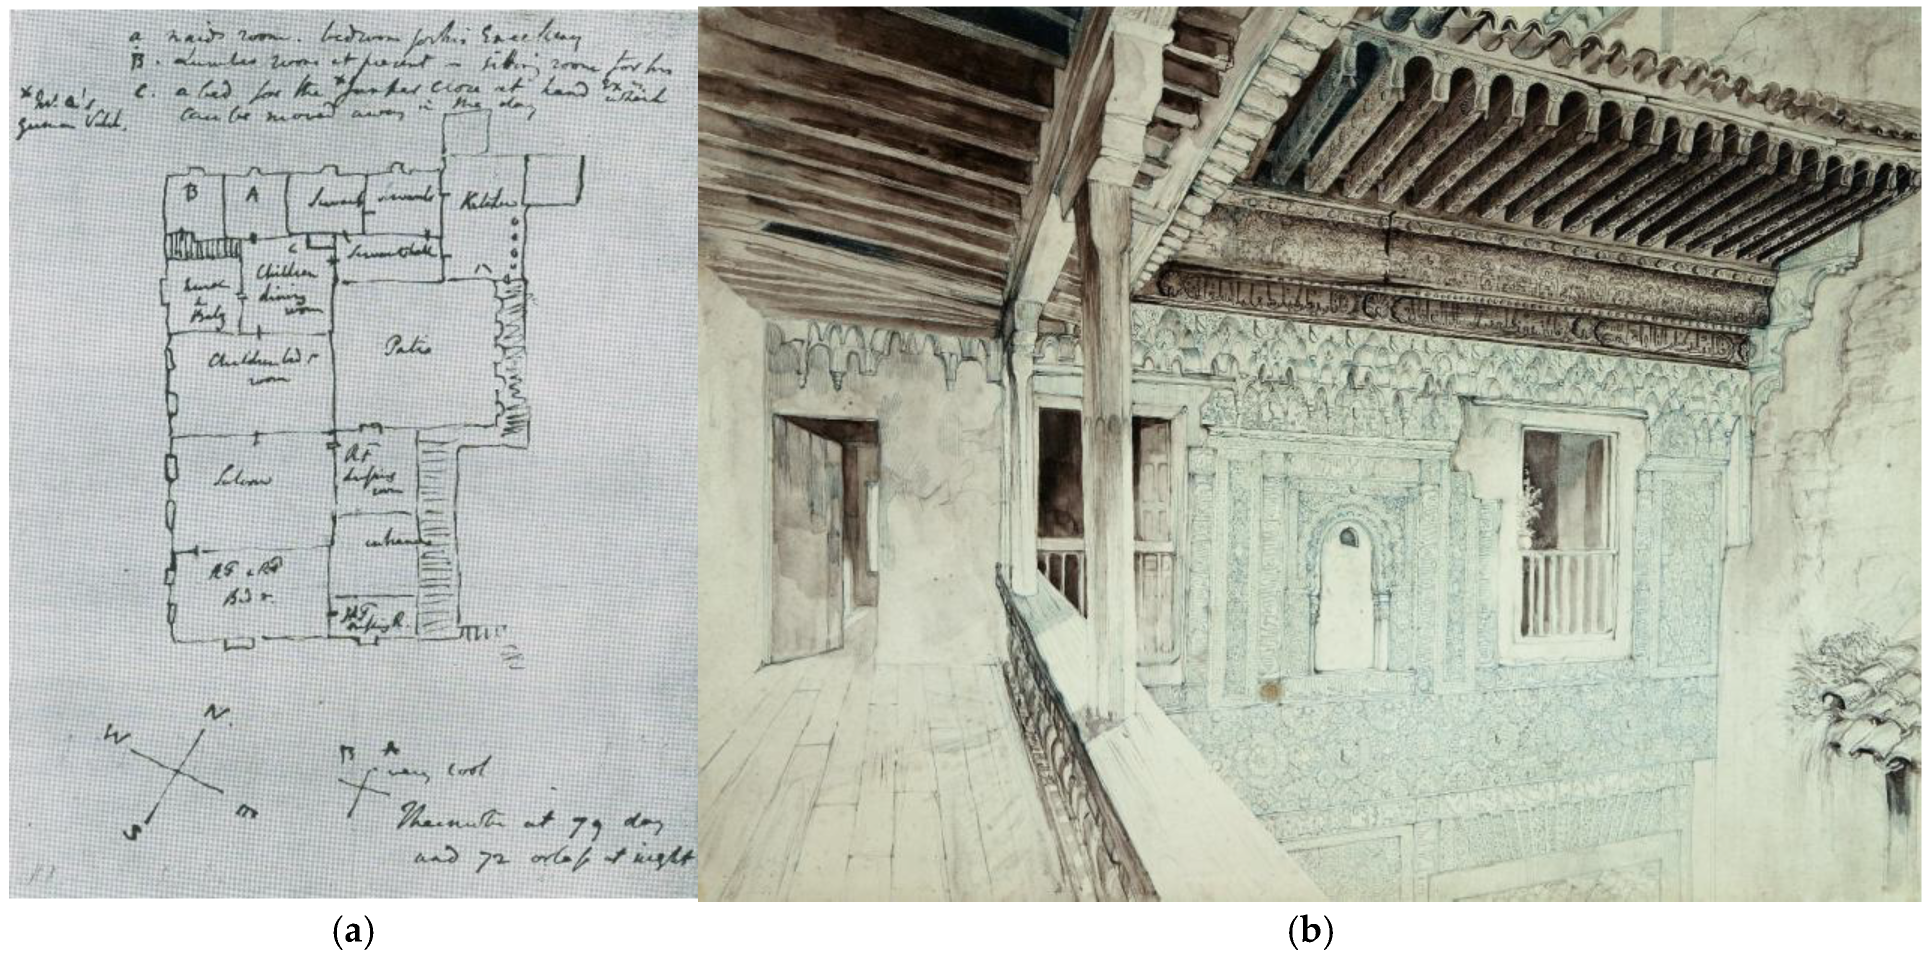 a maids room. bedroom for his Excellency
B. room at present - sitting room for his
C. a bed for the close at hand Ex in which
can be moved away in the day
German Valet.
B
A
Servants
Servants
Kitchen
C
Children
dining
room
Servants hall
nurse
&
Baby
Children bed r
room
Patio
Saloon
RF
dressing
room
entrance
RF & RF
Bed r.
dressing R.
N.
W
S
B
A
very cool
at 79 day
and 72 or less at night
(a)
(b)